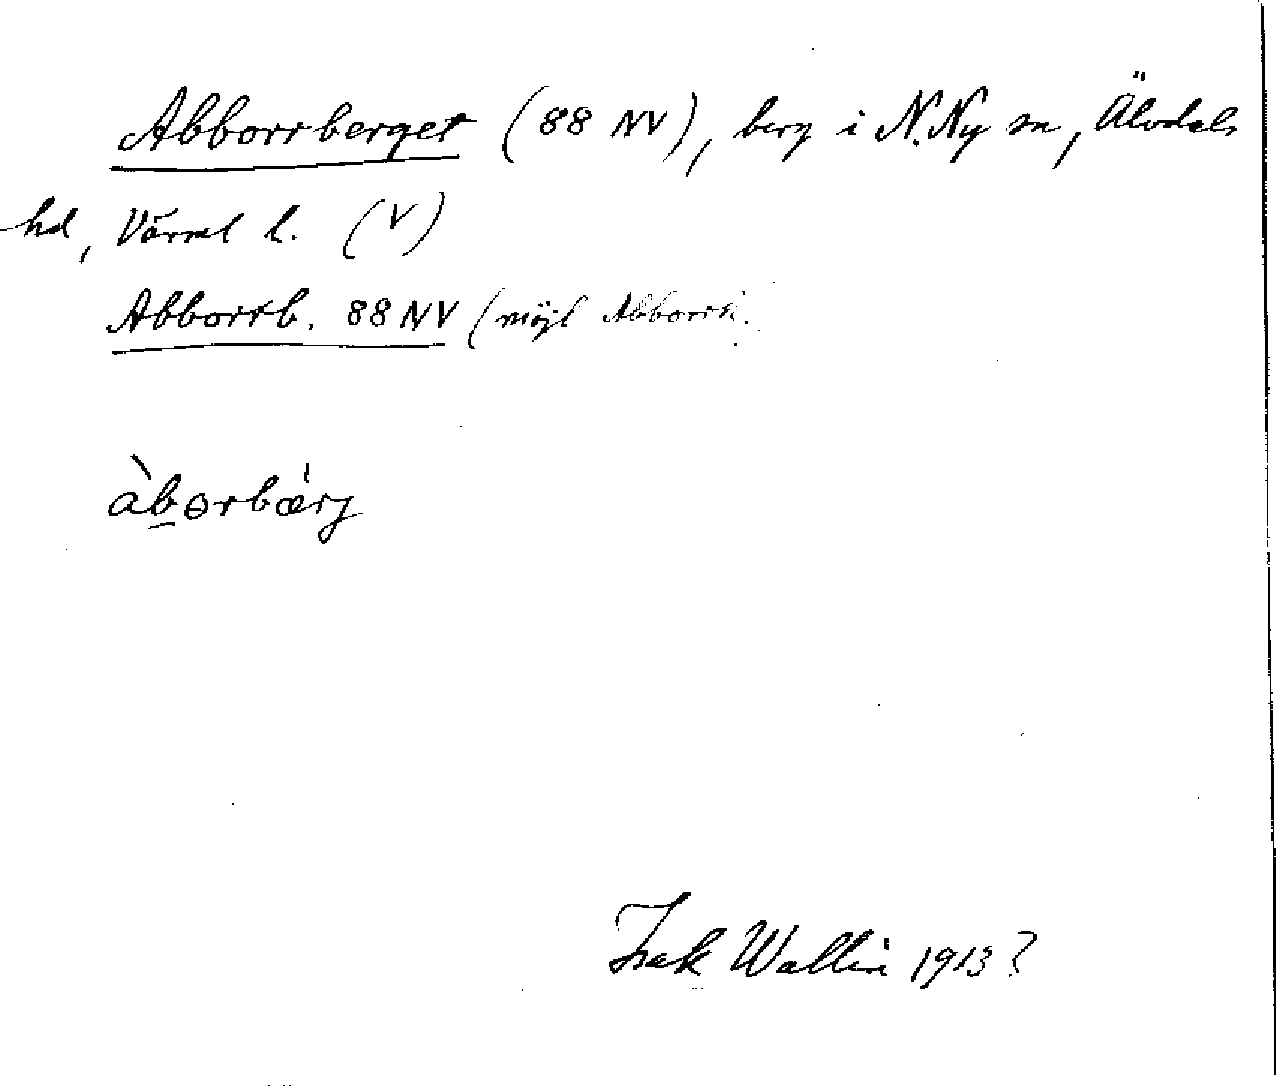 Abborrberget (88 NV), berg i N.Ny sn, Älvdals
hd, Värml l. (V)
Abborrb. 88 NV (möjl Abborrk.
àbɵrbǽrj
Isak Wallin 1913?